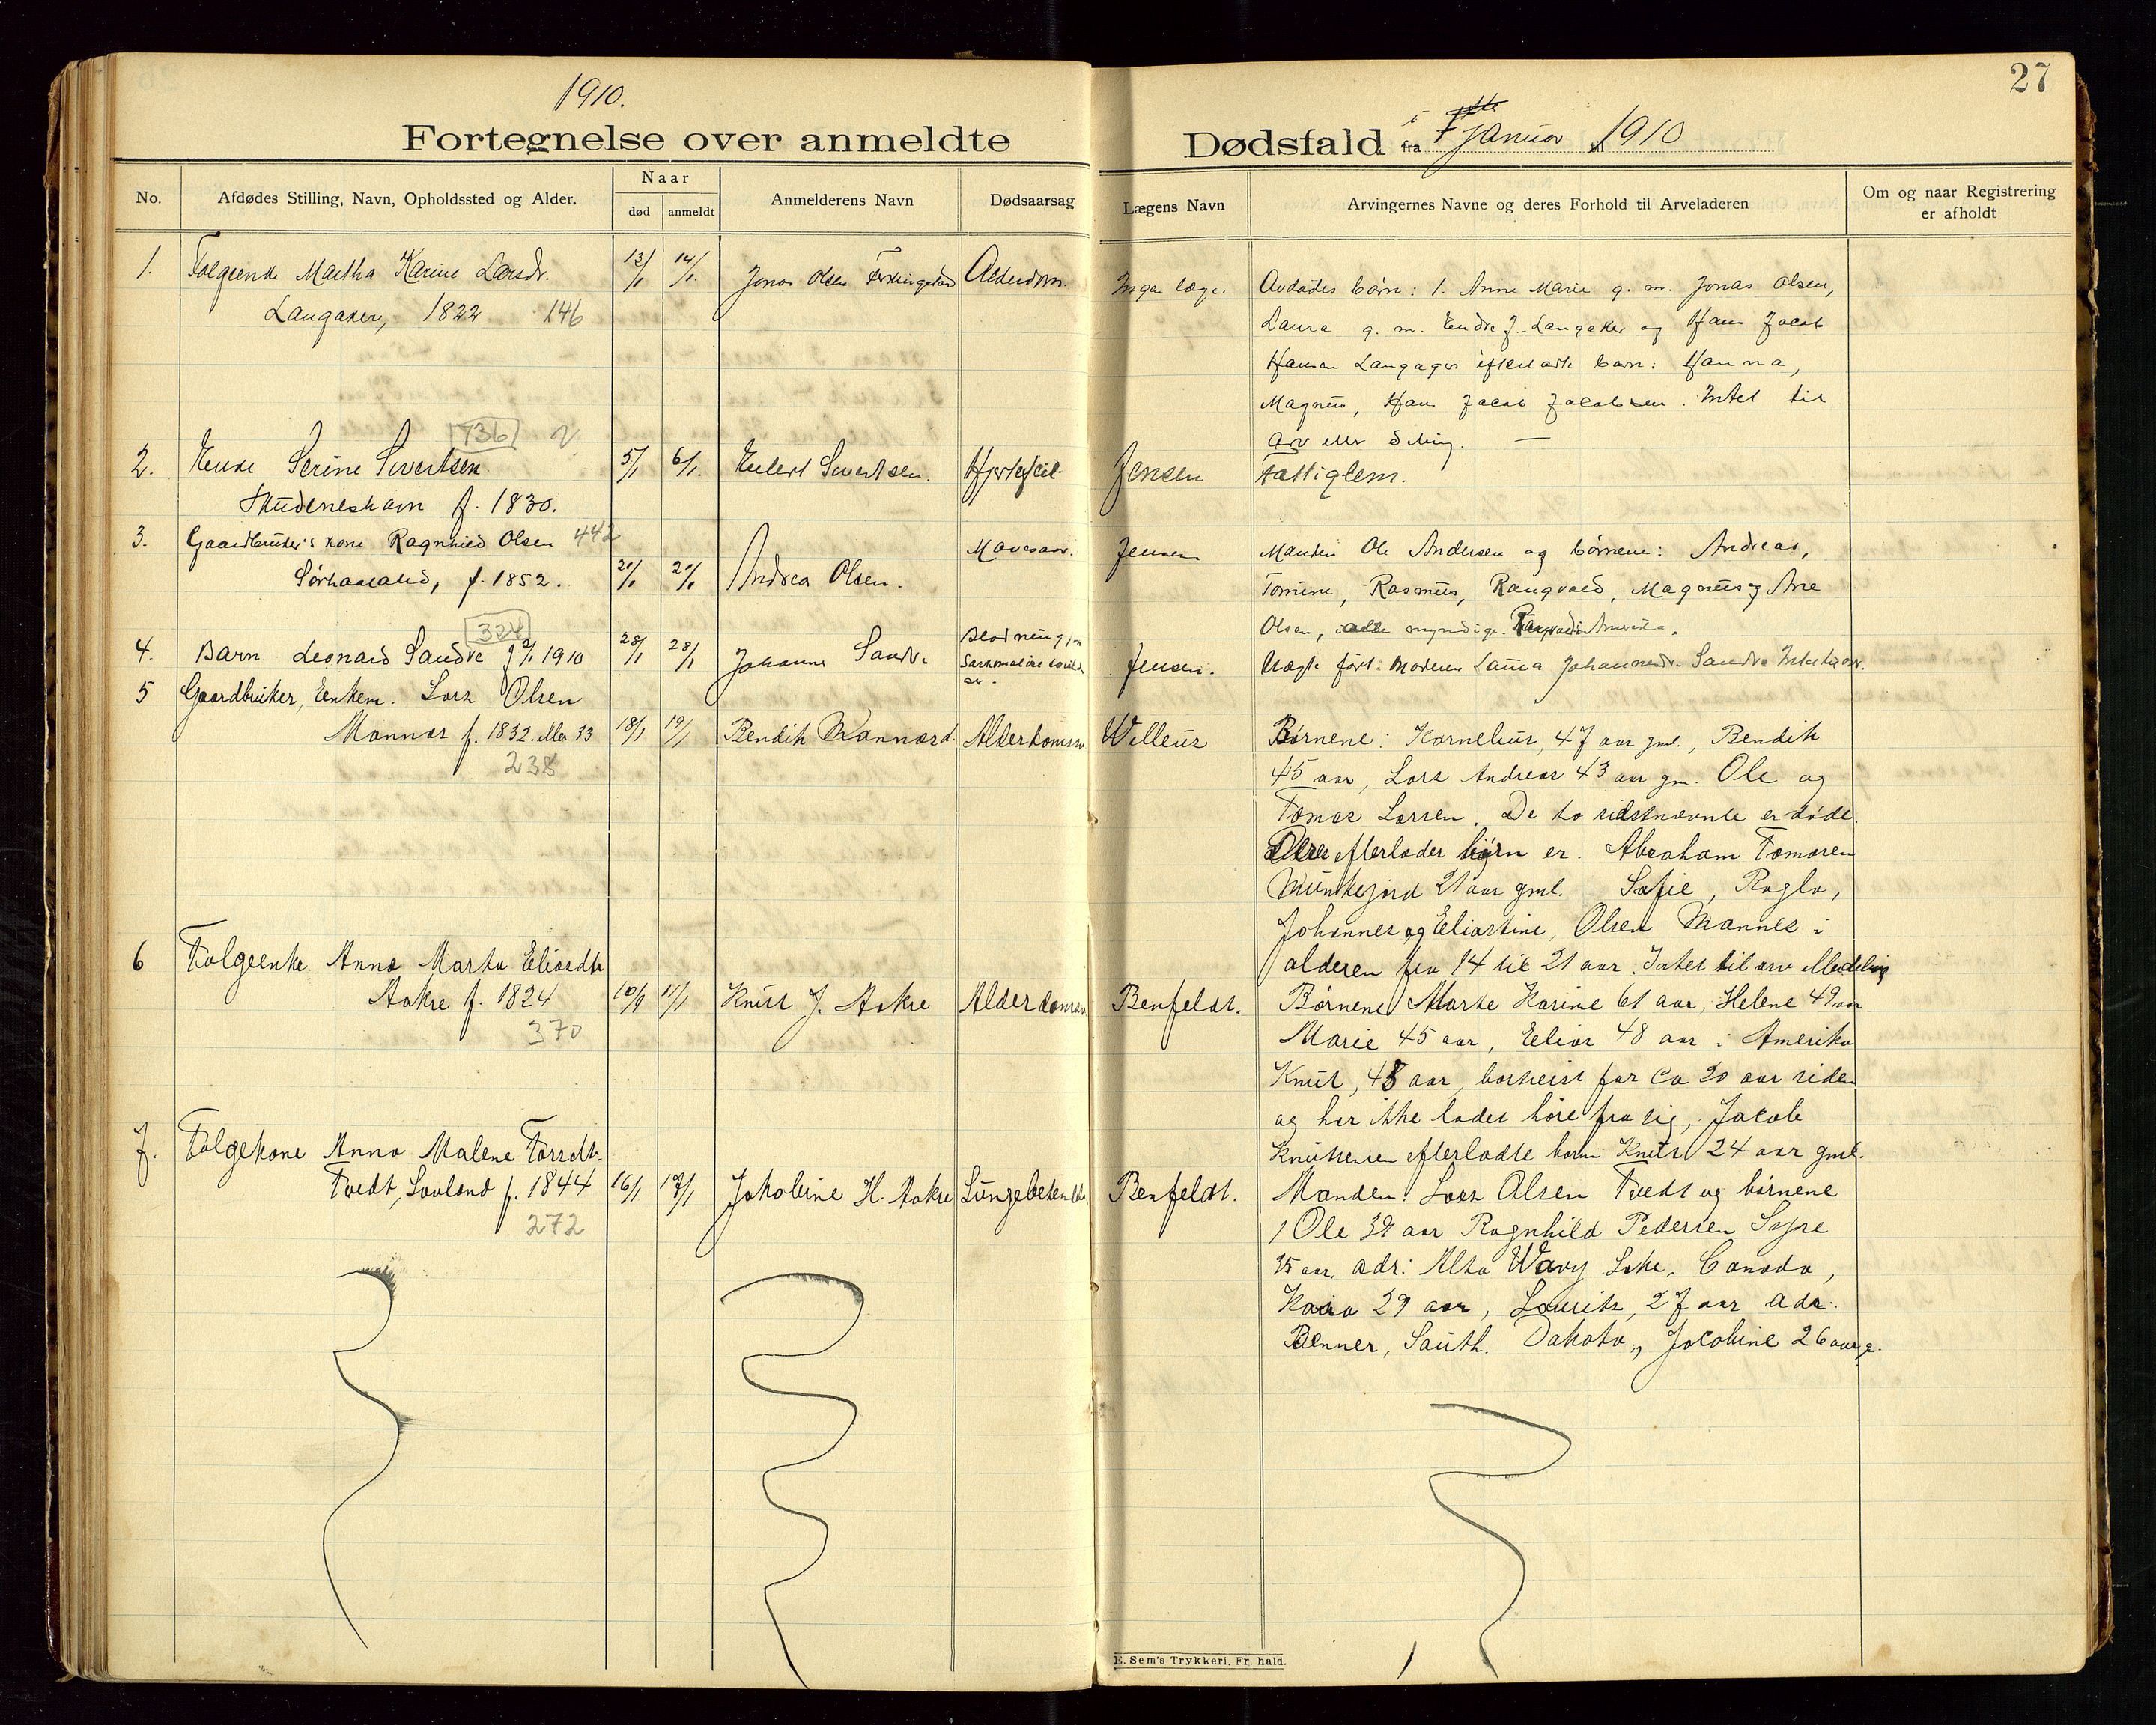 27
1910.
Fortegnelse over anmeldte Dødsfald i fra Januar til 1910
No.
Afdødes Stilling, Navn, Opholdssted og Alder.
Naar
død
anmeldt
Anmelderens Navn
Dødsaarsag
Lægens Navn
Arvingernes Navne og deres Forhold til Arveladeren
Om og naar Registrering
er afholdt
1. Følgeenke Martha Karine Larsdr. 13/1 14/1 Jonas Olsen Ferkingstad Alderdom. Ingen læge. Avdødes børn: 1. Anne Marie g. m. Jonas Olsen,
Langaker, 1822 146
Laura g. m. Endre J. Langaker og Hans Jacob
Hansen Langager efterladte barn: Hanna,
Magnus, Hans Jacob Jacobsen. Intet til
arv eller deling. —
736
2. Enke Serine Sivertsen 5/1 6/1. Eilert Sivertsen. Hjertefeil Jensen Fattiglem.
Skudeneshavn f. 1830.
3. Gaardbruker's kone Ragnhild Olsen 442
Mavesaar. Jensen Manden Ole Andersen og børnene: Andreas,
Sørhaaland, f. 1852. 20/1 20/1 Andrea Olsen.
Tomine, Rasmus, Rangvald, Magnus og Ane
Olsen, alle myndige. Rangvald i Amerika.
324
4. Barn Leonard Sandve 1910 28/1 28/1 Johannes Sandve
Jensen. Uægte født: Moderen Laura Johannesdr. Sandve Intet til arv.
5 Gaardbruker, Enkem. Lars Olsen
Mannes f. 1832 eller 33 18/1 19/1 Bendik Mannes Alderdomssv Willeus Børnene: Kornelius, 47 aar gml., Bendik
238
45 aar, Lars Andreas 43 aar gm. Ole og
Tomas Larsen. De to sidstnævnte er døde.
efterlader børn er. Abraham Tomasen
Munkejord 21 aar gml. Sofie, Ragla,
Johannes og Eliastine, Olsen Mannes i
alderen fra 14 til 21 aar. Intet til arv eller deling
6 Følgeenke Anna Marta Eliasdtr
Aakre f. 1824 10/1 11/1 Knut J. Aakre Alderdomssv Benfeldt. Børnene Marte Karine 61 aar, Helene 49 aar
370
Marie 45 aar, Elias 48 aar i Amerika
Knut, 48 aar, bortreist for ca 20 aar siden
og har ikke ladet høre fra sig, Jacob
Knutsens efterladte barn Knut 24 aar gml.
7. Følgekone Anna Malene Tarsdtr.
Tvedt, Søvland f. 1844 16/1 17/1 Jakobine H. Aakre Lungebetendt. Benfeldt. Manden: Lars Olsen Tvedt og børnene
272
1 Ole 39 aar Ragnhild Pedersen Syre
35 aar, adr: Alta Wavy Lake, Canada,
Kaia 29 aar, Laurits, 27 aar adr.
Benner, South. Dakota,, Jacobine 26 aar g.
E. Sem's Trykkeri, Fr. hald.